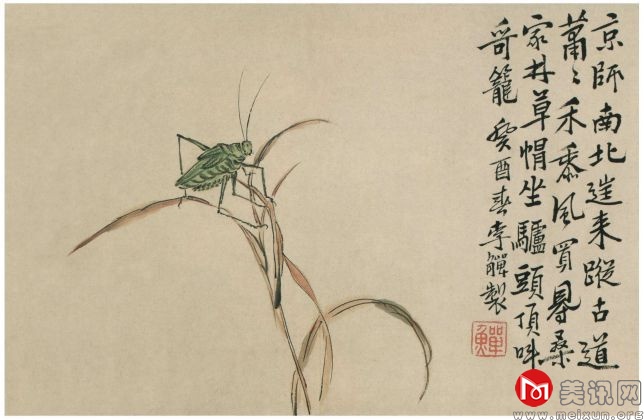 京師南北来蹤古道
蕭〻禾黍風買㝵桑
家草帽坐驢頭頂呌
哥籠 癸酉春李觶製
鱓
美讯网
www.meixun.org